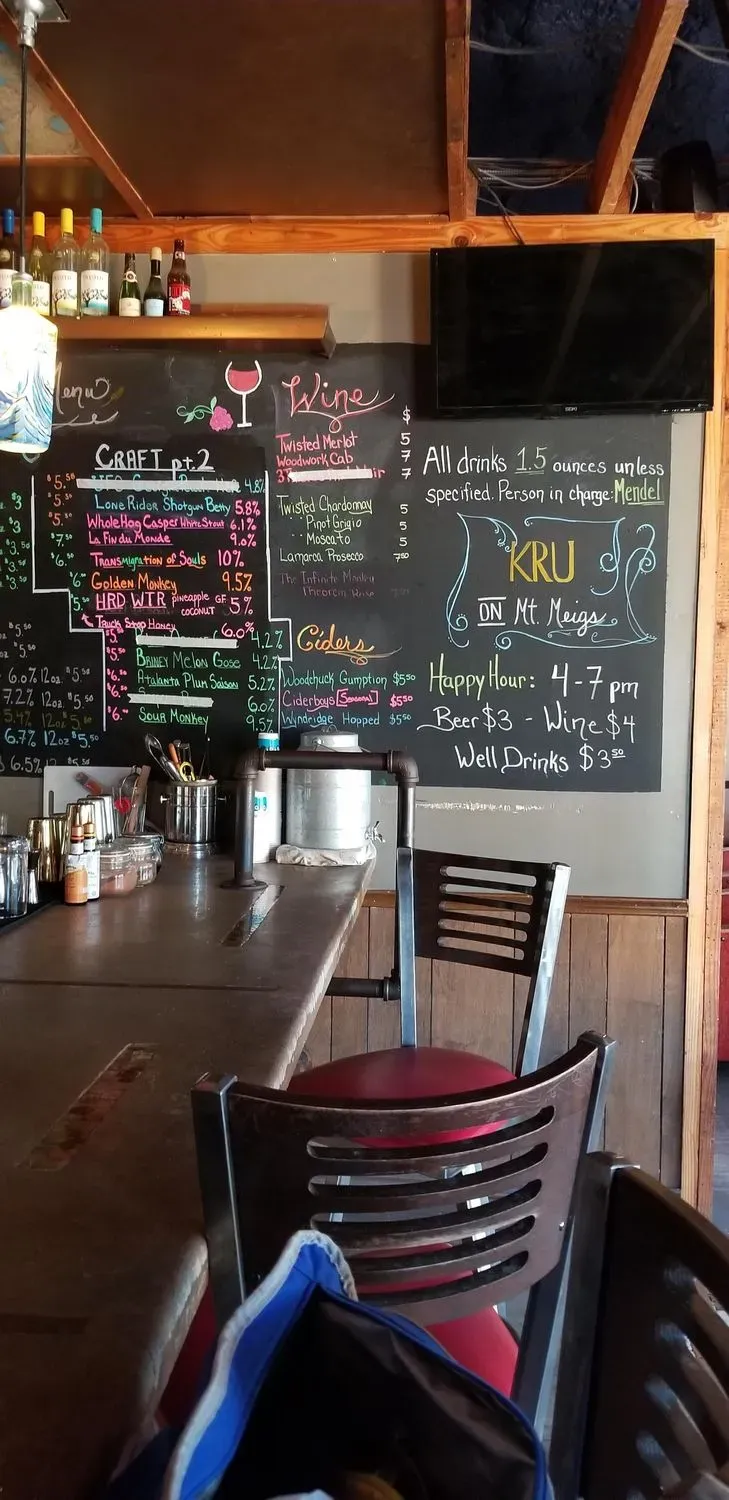 CRAFT pt. 2
4.8%
Lone Rider Shotgun Betty 5.8%
Whole Hog Casper White Stout 6.1%
La Fin du Monde 9.0%
Transmigration of Souls 10%
Golden Monkey 9.5%
HRD WTR pineapple coconut GF 5%
Truck Stop Honey 6.0%
4.2%
Briney Melon Gose 4.2%
Atalanta Plum Saison 5.2%
6.0%
Sour Monkey 9.5%
6.0% 12oz. $5.50
7.2% 12oz. $5.50
5.4% 12oz $5.50
6.7% 12oz $5.50
6.5%
Wine
$
Twisted Merlot 5
Woodwork Cab 7
7
Twisted Chardonnay 5
" Pinot Grigio 5
" Moscato 5
Lamarca Prosecco 750
The Infinite Monkey
Theorem Rose
Ciders
Woodchuck Gumption $550
Ciderboys [Seasonal] $550
Wyndridge Hopped $550
All drinks 1.5 ounces unless
specified. Person in charge: Mendel
KRU
ON Mt. Meigs
Happy Hour: 4-7 pm
Beer $3 - Wine $4
Well Drinks $350